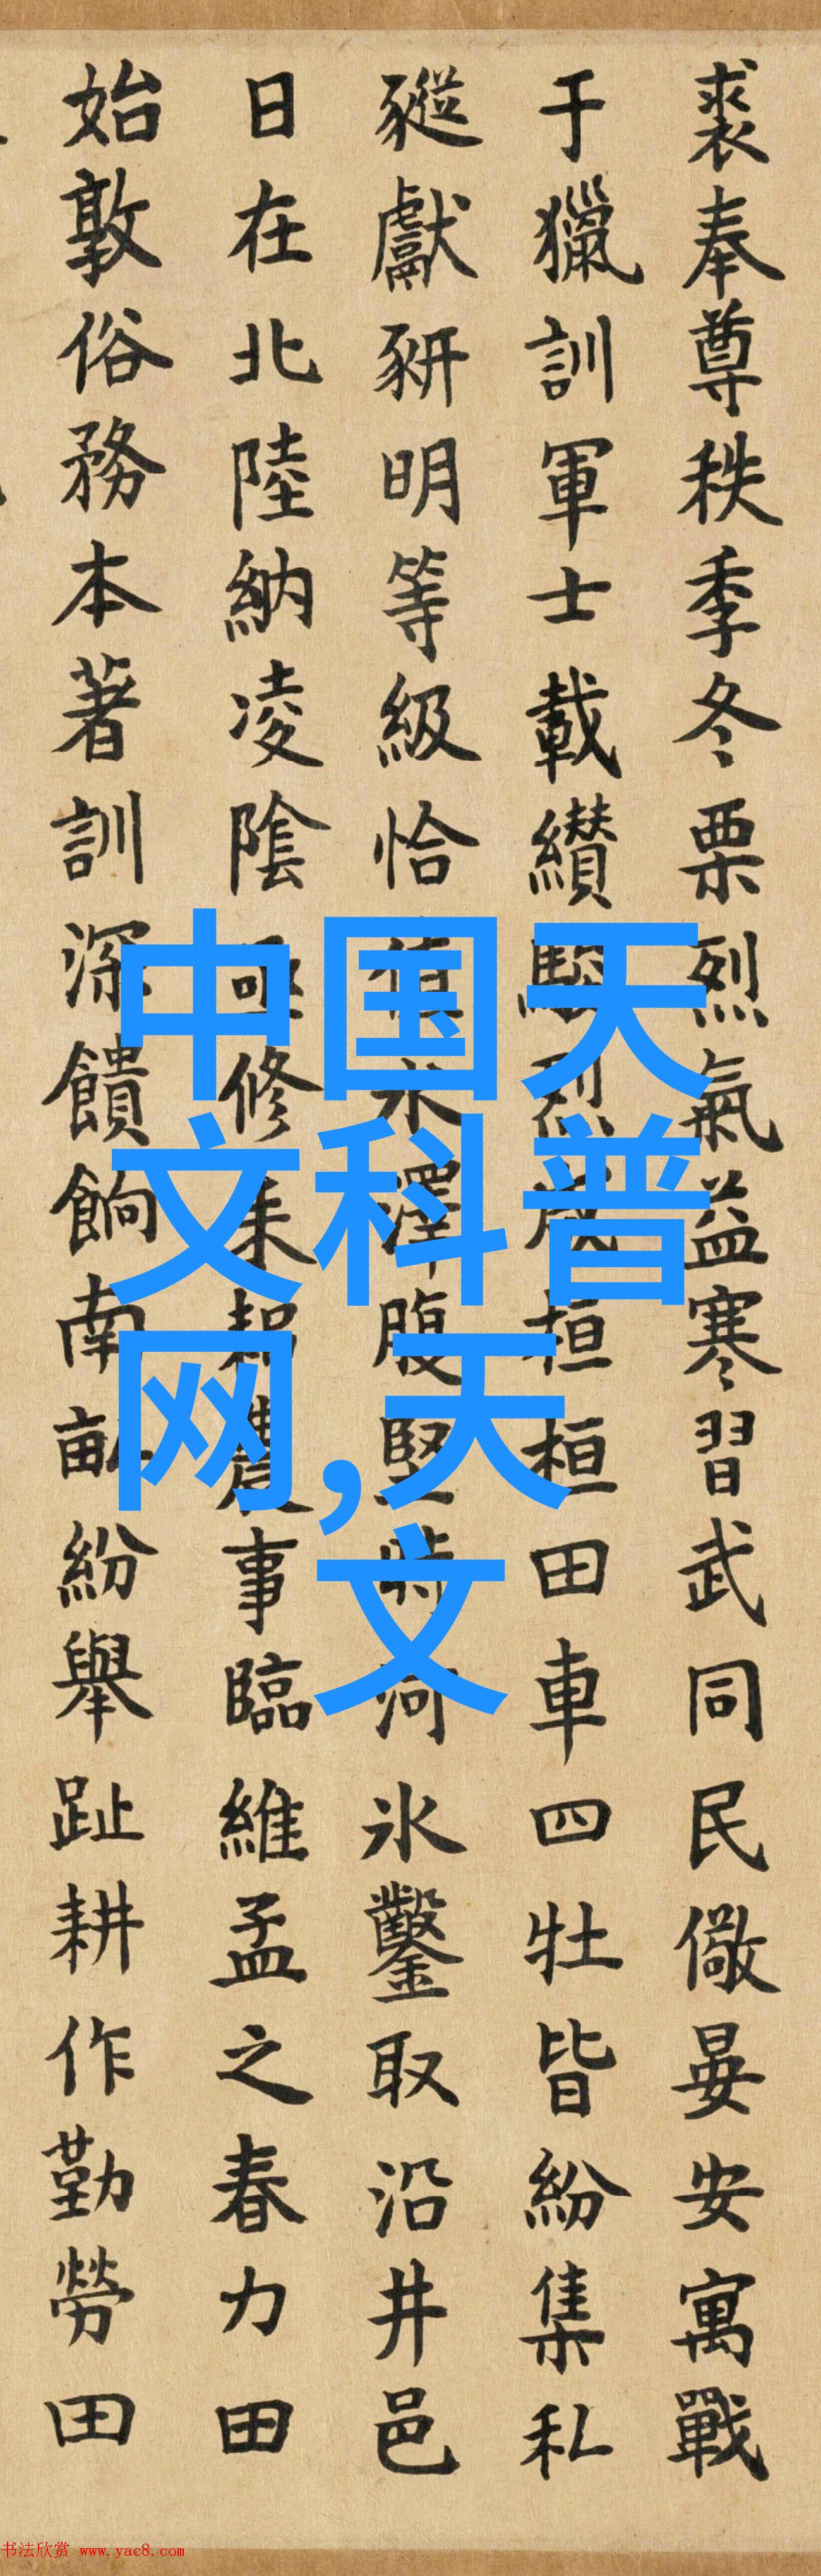 裘奉尊秩季冬栗烈氣益寒習武同民儆晏安寓戰
于獵訓軍士載纘烈桓桓田車四牡皆紛集私
豵獻豜明等級恰水澤腹堅時河氷鑿取沿井邑
日在北陸納凌陰修耒耜農事臨維孟之春力田
始敦俗務本著訓深饋餉南畝紛舉趾耕作勤勞田
中国天
文科普
网,天
文
书法欣赏 www.yac8.com